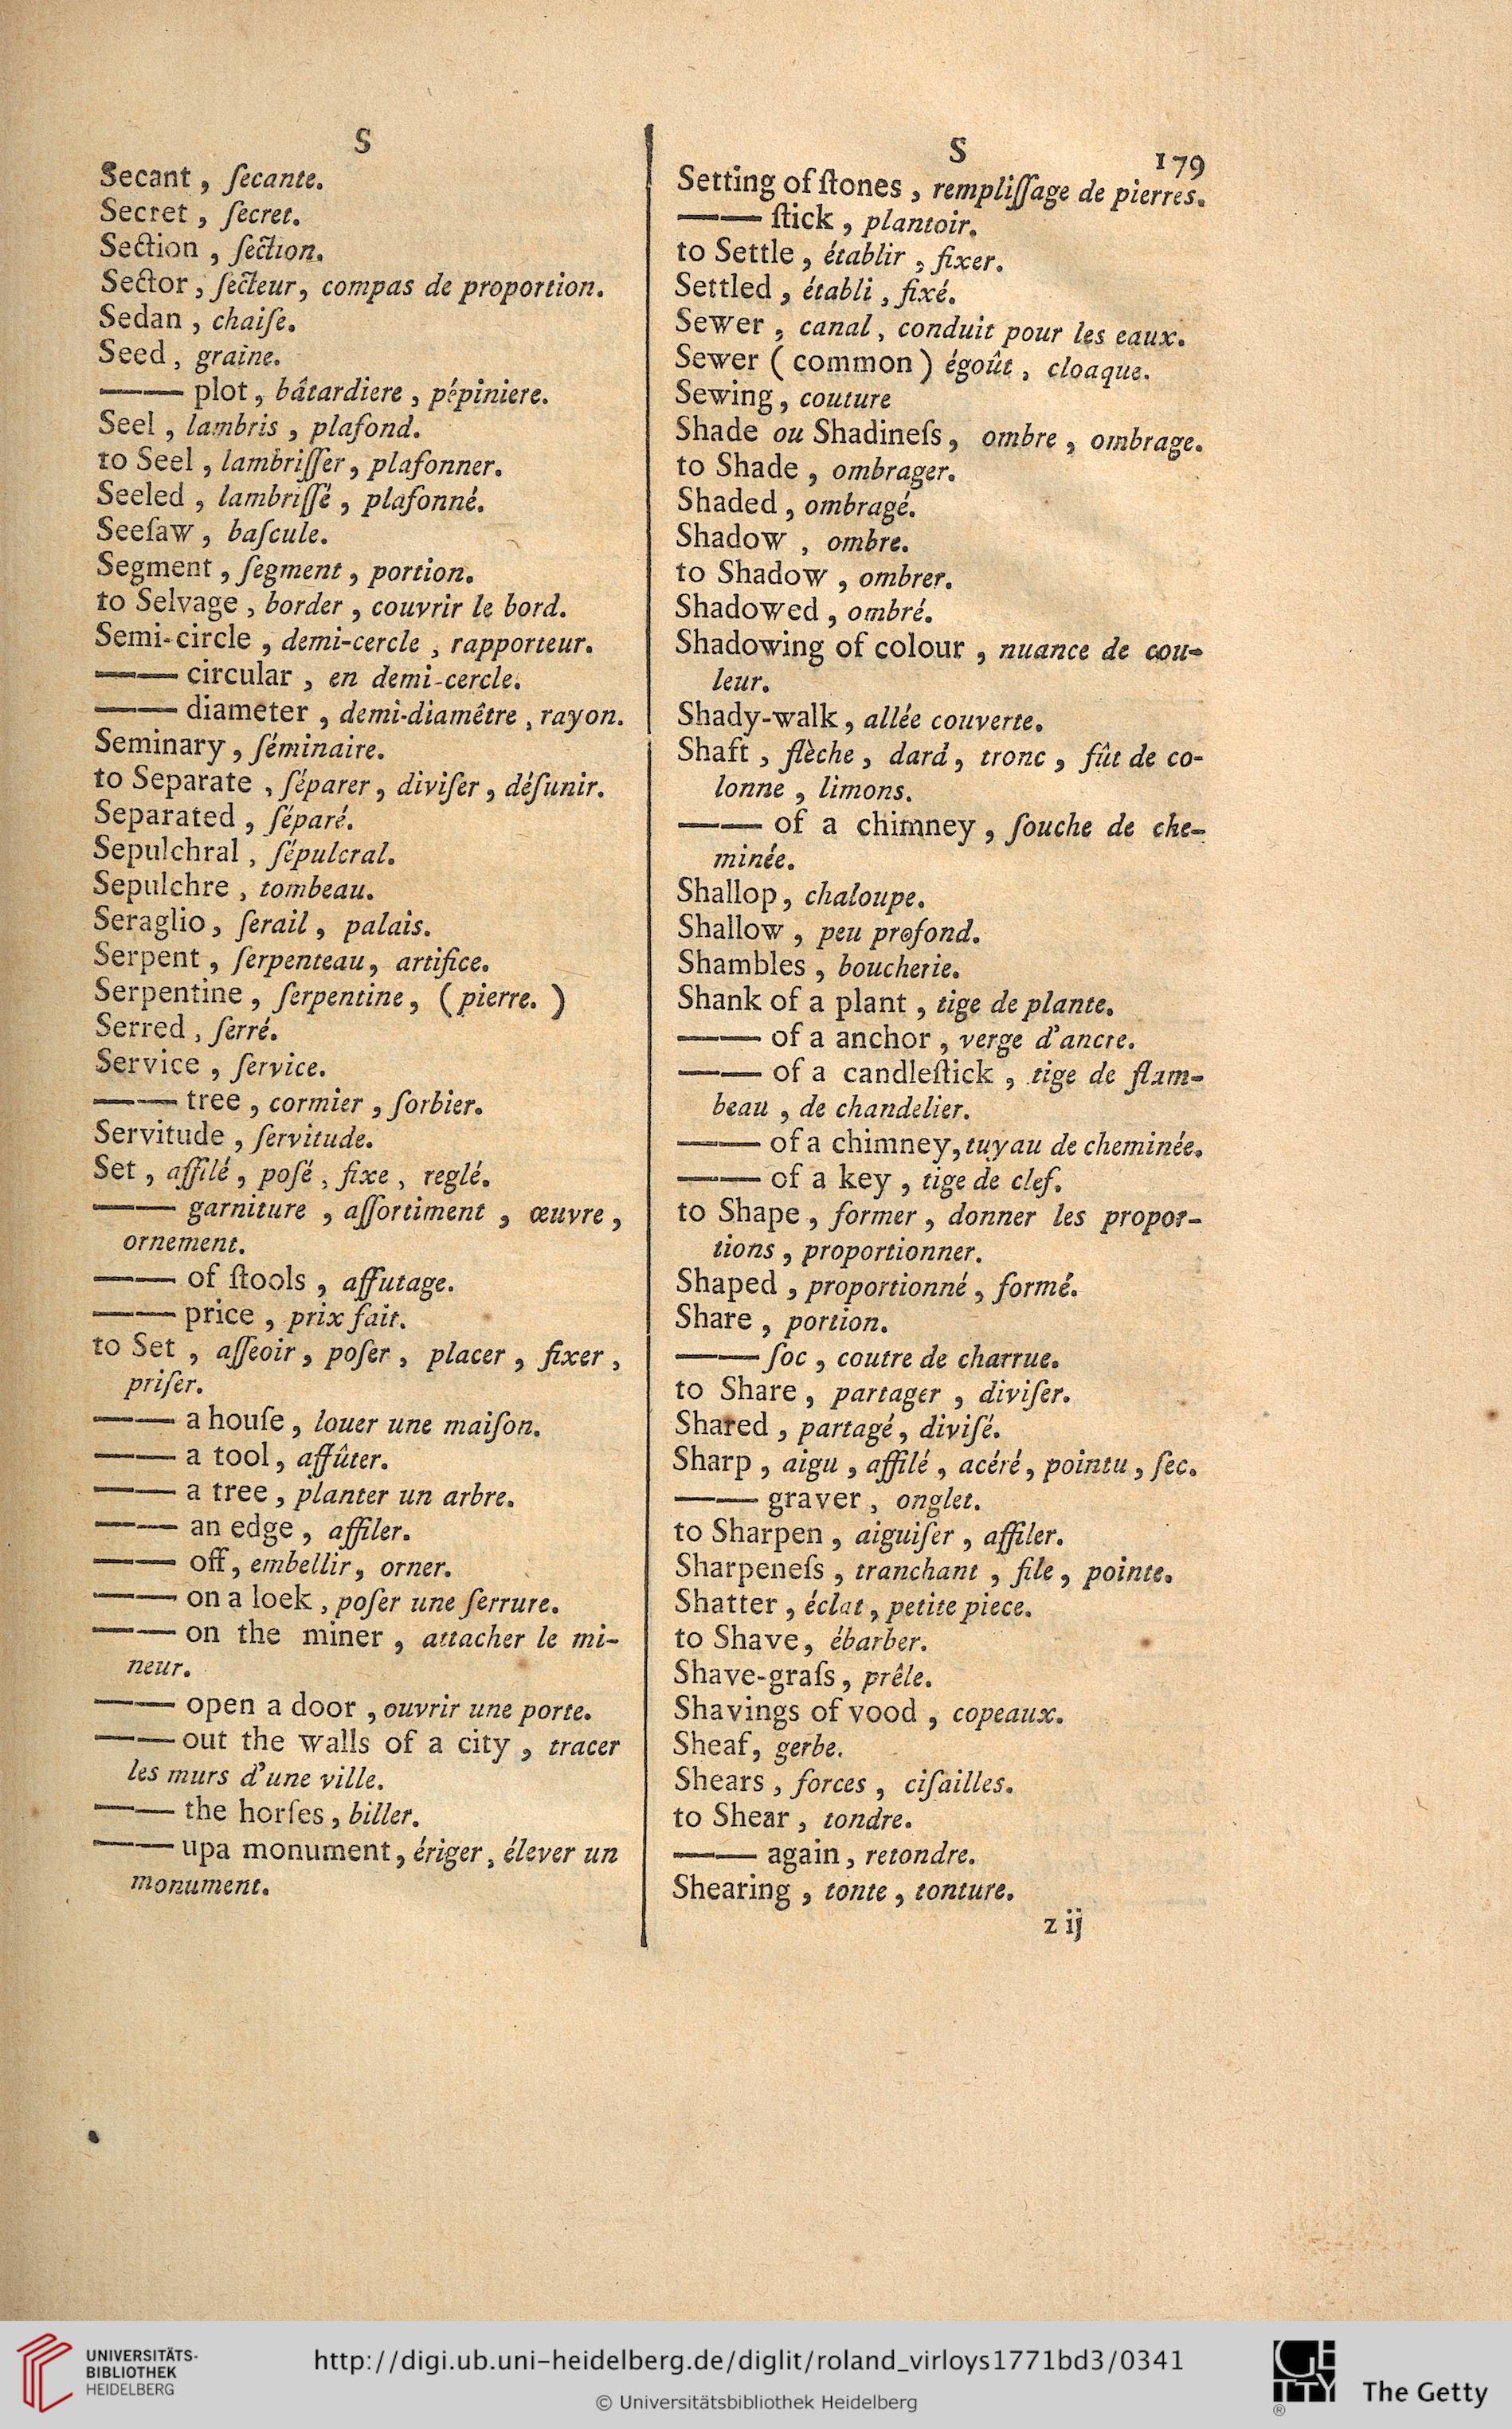 S
Secant, ſecante.
Secret, ſecret.
Section, ſection.
Sector, ſecteur, compas de proportion.
Sedan, chaiſe.
Seed, graine.
—— plot, bâtardiere, pépiniere.
Seel, lambris, plafond.
to Seel, lambriſſer, plafonner.
Seeled, lambriſſé, plafonné.
Seeſaw, baſcule.
Segment, ſegment, portion.
to Selvage, border, couvrir le bord.
Semi-circle, demi-cercle, rapporteur.
—— circular, en demi-cercle.
—— diameter, demi-diamêtre, rayon.
Seminary, ſéminaire.
to Separate, ſéparer, diviſer, déſunir.
Separated, ſéparé.
Sepulchral, ſépulcral.
Sepulchre, tombeau.
Seraglio, ſerail, palais.
Serpent, ſerpenteau, artifice.
Serpentine, ſerpentine, (pierre.)
Serred, ſerré.
Service, ſervice.
—— tree, cormier, ſorbier.
Servitude, ſervitude.
Set, affilé, poſé, fixe, reglé.
—— garniture, aſſortiment, œuvre,
ornement.
—— of ſtools, affutage.
—— price, prix fait.
to Set, aſſeoir, poſer, placer, fixer,
priſer.
—— a houſe, louer une maiſon.
—— a tool, affûter.
—— a tree, planter un arbre.
—— an edge, affiler.
—— off, embellir, orner.
—— on a loek, poſer une ſerrure.
—— on the miner, attacher le mi-
neur.
—— open a door, ouvrir une porte.
—— out the walls of a city, tracer
les murs d'une ville.
—— the horſes, biller.
—— upa monument, ériger, élever un
monument.
S 179
Setting of ſtones, rempliſſage de pierres.
—— ſtick, plantoir.
to Settle, établir, fixer.
Settled, établi, fixé.
Sewer, canal, conduit pour les eaux.
Sewer (common) égoût, cloaque.
Sewing, couture
Shade ou Shadineſs, ombre, ombrage.
to Shade, ombrager.
Shaded, ombragé.
Shadow, ombre.
to Shadow, ombrer.
Shadowed, ombré.
Shadowing of colour, nuance de cou-
leur.
Shady-walk, allée couverte.
Shaft, flèche, dard, tronc, fût de co-
lonne, limons.
—— of a chimney, ſouche de che-
minée.
Shallop, chaloupe.
Shallow, peu profond.
Shambles, boucherie.
Shank of a plant, tige de plante.
—— of a anchor, verge d'ancre.
—— of a candleſtick, tige de flam-
beau, de chandelier.
—— of a chimney, tuyau de cheminée.
—— of a key, tige de clef.
to Shape, former, donner les propor-
tions, proportionner.
Shaped, proportionné, formé.
Share, portion.
—— ſoc, coutre de charrue.
to Share, partager, diviſer.
Shared, partagé, diviſé.
Sharp, aigu, affilé, acéré, pointu, ſec.
—— graver, onglet.
to Sharpen, aiguiſer, affiler.
Sharpeneſs, tranchant, file, pointe.
Shatter, éclat, petite piece.
to Shave, ébarber.
Shave-graſs, prêle.
Shavings of vood, copeaux.
Sheaf, gerbe.
Shears, forces, ciſailles.
to Shear, tondre.
—— again, retondre.
Shearing, tonte, tonture.
z ij
UNIVERSITÄTS-
BIBLIOTHEK
HEIDELBERG
http://digi.ub.uni-heidelberg.de/diglit/roland_virloys1771bd3/0341
© Universitätsbibliothek Heidelberg
The Getty